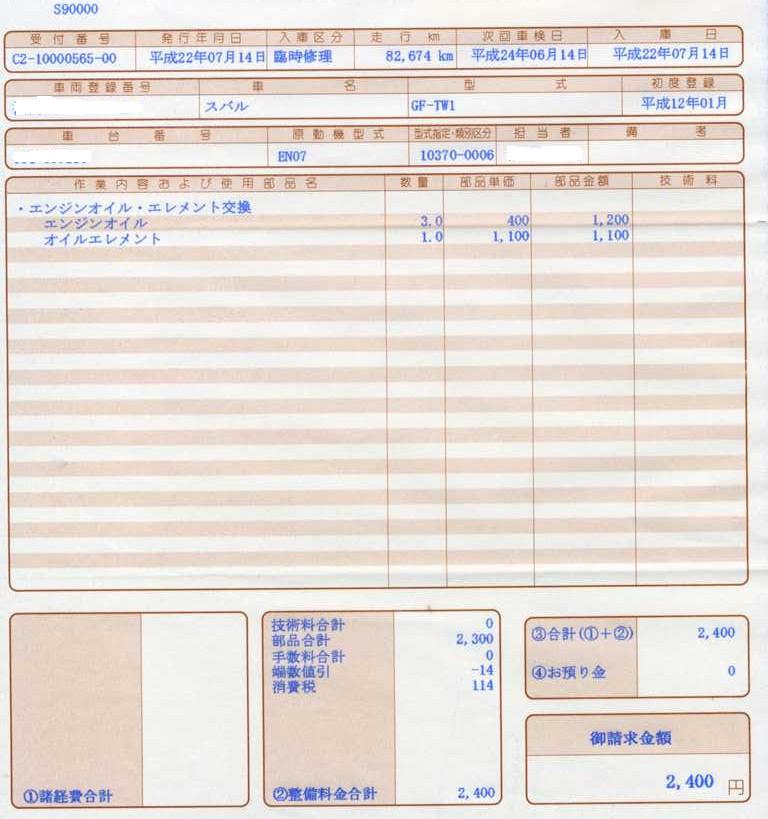 S90000
受付番号 発行年月日 入庫区分 走行 km 次回車検日 入庫日
C2-10000565-00 平成22年07月14日 臨時修理 82,674 km 平成24年06月14日 平成22年07月14日
車両登録番号 車名 型式 初度登録
スバル GF-TW1 平成12年01月
車台番号 原動機型式 型式指定・類別区分 担当者 備考
EN07 10370-0006
作業内容および使用部品名 数量 部品単価 部品金額 技術料
・エンジンオイル・エレメント交換
エンジンオイル 3.0 400 1,200
オイルエレメント 1.0 1,100 1,100
技術料合計 0
部品合計 2,300
手数料合計 0
端数値引 -14
消費税 114
①諸経費合計
②整備料金合計 2,400
③合計(①+②) 2,400
④お預り金 0
御請求金額
2,400 円